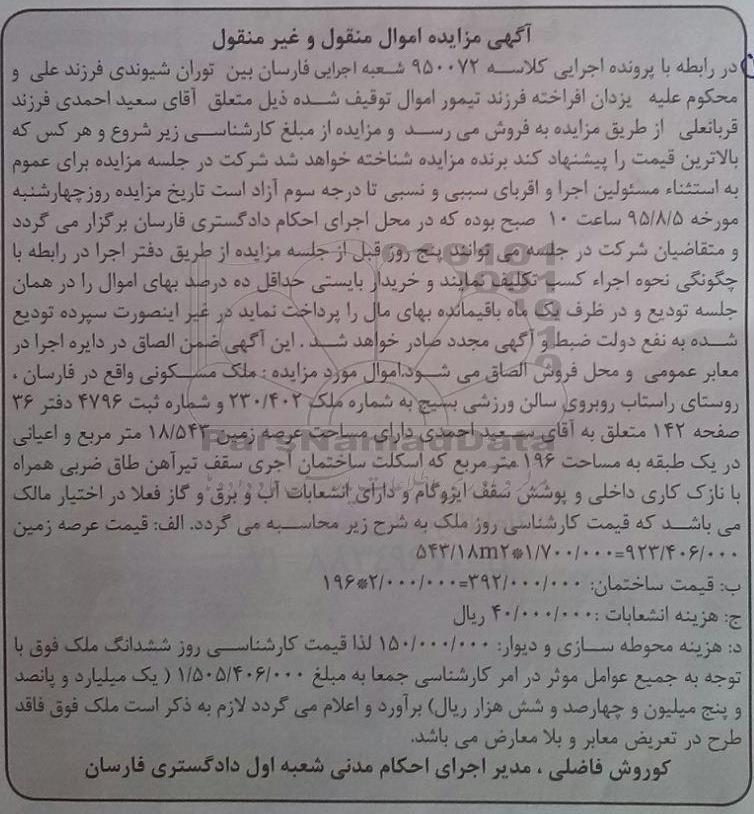 آگهی مزایده اموال منقول و غیر منقول
در رابطه با پرونده اجرایی کلاسه ۹۵۰۰۷۲ شعبه اجرایی فارسان بین توران شیوندی فرزند علی و
محکوم علیه یزدان افراخته فرزند تیمور اموال توقیف شده ذیل متعلق آقای سعید احمدی فرزند
قربانعلی از طریق مزایده به فروش می رسد و مزایده از مبلغ کارشناسی زیر شروع و هر کس که
بالاترین قیمت را پیشنهاد کند برنده مزایده شناخته خواهد شد شرکت در جلسه مزایده برای عموم
به استثناء مسئولین اجرا و اقربای سببی و نسبی تا درجه سوم آزاد است تاریخ مزایده روزچهارشنبه
مورخه ۹۵/۸/۵ ساعت ۱۰ صبح بوده که در محل اجرای احکام دادگستری فارسان برگزار می گردد
و متقاضیان شرکت در جلسه می توانند پنج روز قبل از جلسه مزایده از طریق دفتر اجرا در رابطه با
چگونگی نحوه اجراء کسب تکلیف نمایند و خریدار بایستی حداقل ده درصد بهای اموال را در همان
جلسه تودیع و در ظرف یک ماه باقیمانده بهای مال را پرداخت نماید در غیر اینصورت سپرده تودیع
شده به نفع دولت ضبط و آگهی مجدد صادر خواهد شد . این آگهی ضمن الصاق در دایره اجرا در
معابر عمومی و محل فروش الصاق می شود.اموال مورد مزایده : ملک مسکونی واقع در فارسان ،
روستای راستاب روبروی سالن ورزشی بسیج به شماره ملک ۲۳۰/۴۰۲ و شماره ثبت ۴۷۹۶ دفتر ۳۶
صفحه ۱۴۲ متعلق به آقای سعید احمدی دارای مساحت عرصه زمین ۱۸/۵۴۳ متر مربع و اعیانی
در یک طبقه به مساحت ۱۹۶ متر مربع که اسکلت ساختمان آجری سقف تیرآهن طاق ضربی همراه
با نازک کاری داخلی و پوشش سقف ایزوگام و دارای انشعابات آب و برق و گاز فعلا در اختیار مالک
می باشد که قیمت کارشناسی روز ملک به شرح زیر محاسبه می گردد. الف: قیمت عرصه زمین
۵۴۳/۱۸m۲*۱/۷۰۰/۰۰۰=۹۲۳/۴۰۶/۰۰۰
ب: قیمت ساختمان: ۱۹۶*۲/۰۰۰/۰۰۰=۳۹۲/۰۰۰/۰۰۰
ج: هزینه انشعابات :۴۰/۰۰۰/۰۰۰ ریال
د: هزینه محوطه سازی و دیوار: ۱۵۰/۰۰۰/۰۰۰ لذا قیمت کارشناسی روز ششدانگ ملک فوق با
توجه به جمیع عوامل موثر در امر کارشناسی جمعا به مبلغ ۱/۵۰۵/۴۰۶/۰۰۰ ( یک میلیارد و پانصد
و پنج میلیون و چهارصد و شش هزار ریال) برآورد و اعلام می گردد لازم به ذکر است ملک فوق فاقد
طرح در تعریض معابر و بلا معارض می باشد.
کوروش فاضلی ، مدیر اجرای احکام مدنی شعبه اول دادگستری فارسان
ParsNamadData